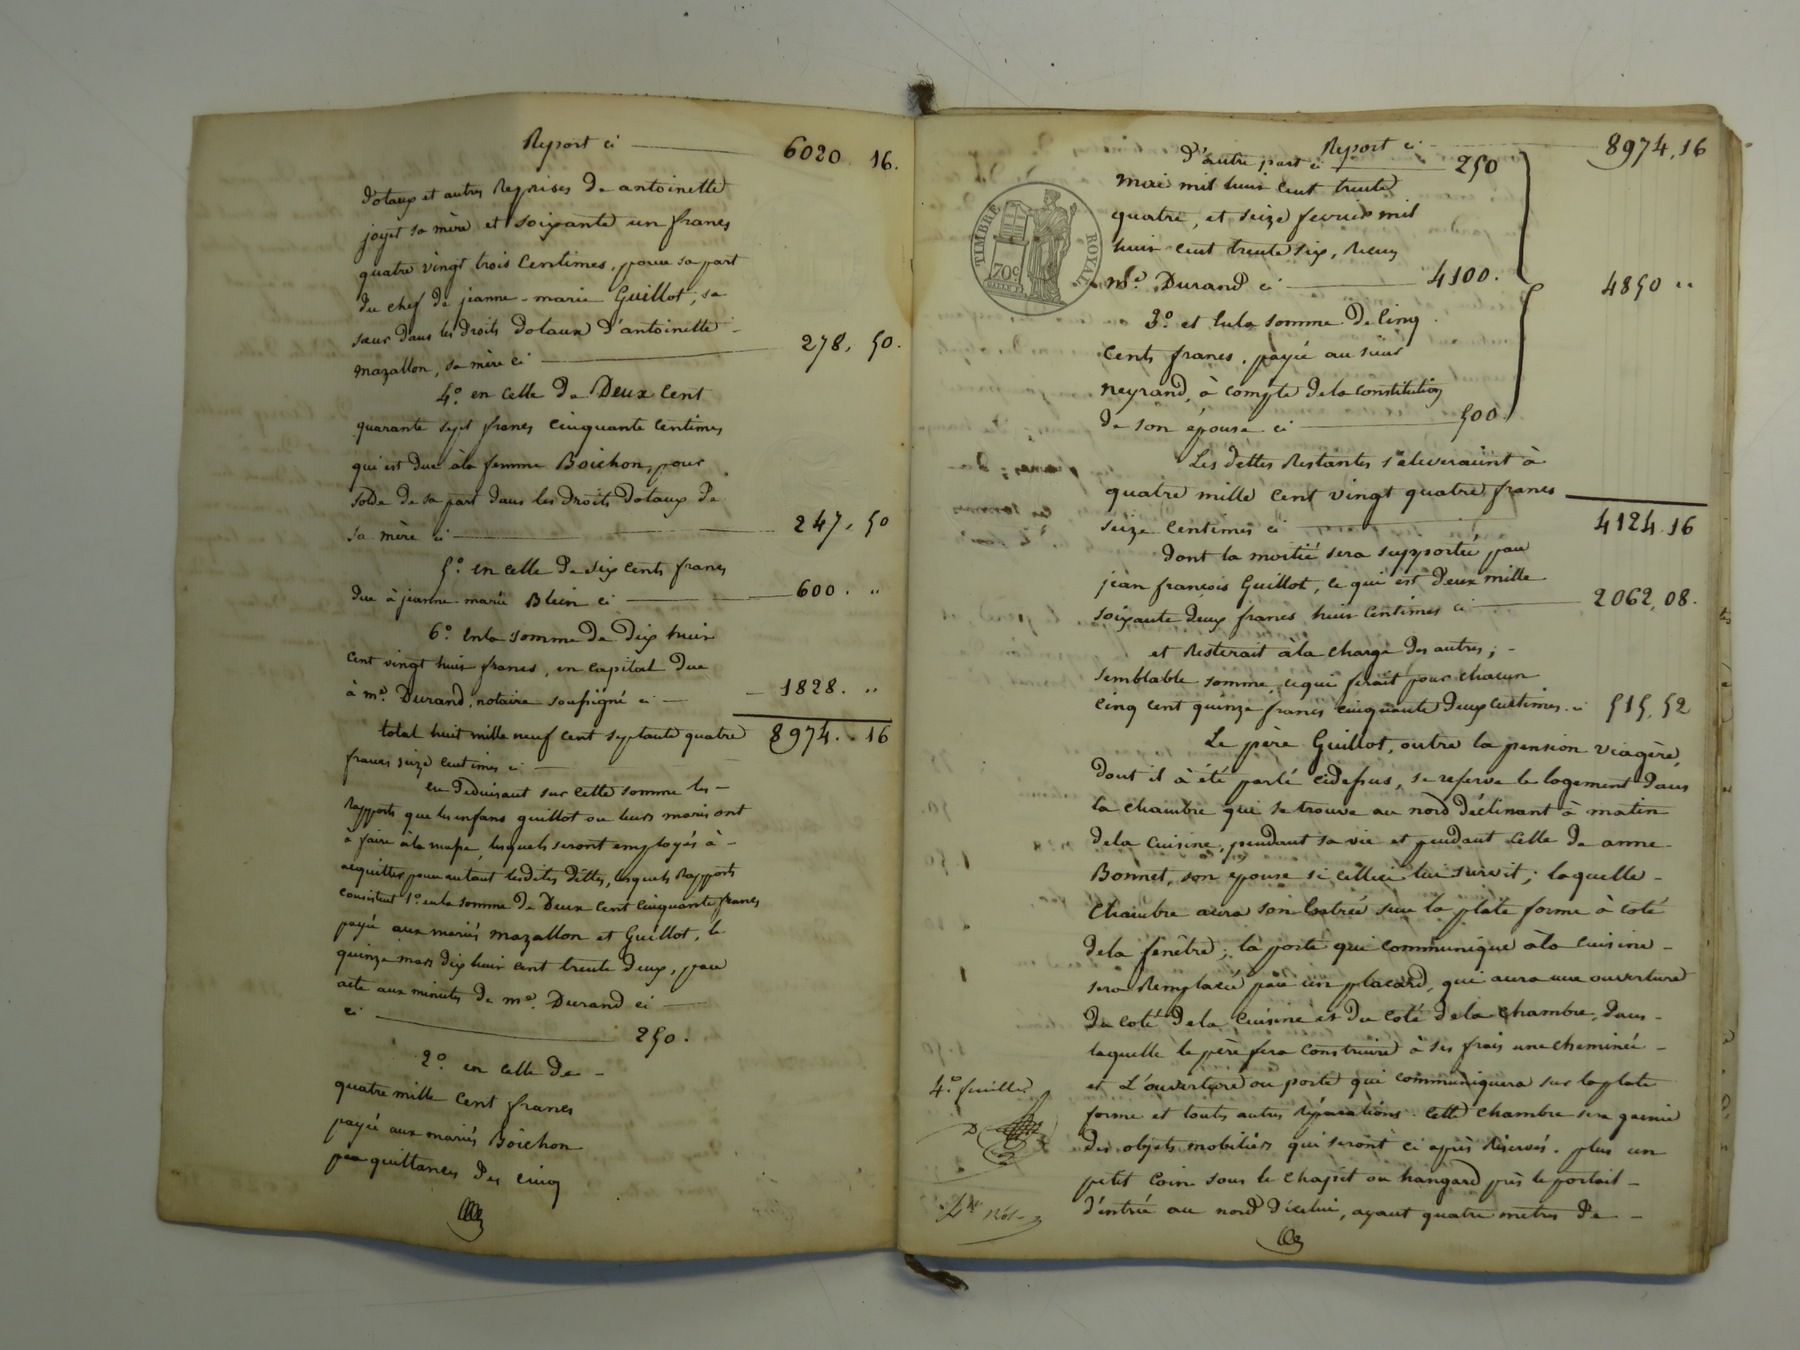 Report ci 6020. 16.
dotaux et autres reprises de antoinette
joyet sa mère et soixante un francs
quatre vingt trois centimes, pour sa part
du chef de jeanne-marie Guillot, sa
sœur dans les droits dotaux d'antoinette
mazallon, sa mère ci 278. 50.
4.° en celle de Deux cent
quarante sept francs cinquante centimes
qui est due à la femme Boichon, pour
solde de sa part dans les droits dotaux de
sa mère ci 247. 50
5.° en celle de six cents francs
due à jeanne-marie Blein ci 600. "
6.° en la somme de dix huit
cent vingt huit francs, en capital due
à m.e Durand, notaire soussigné ci 1828. "
total huit mille neuf cent septante quatre 8974. 16
francs seize centimes ci
en déduisant sur cette somme les
rapports que les enfans guillot ou leurs maris ont
à faire à la masse, lesquels seront employés à
acquitter pour autant lesdites dettes, lesquels rapports
consistent 1.° en la somme de Deux cent cinquante francs
payée aux mariés mazallon et Guillot, le
quinze mars dix huit cent trente deux, par
acte aux minutes de m.e Durand ci
ci 250.
2.° en celle de
quatre mille cent francs
payée aux mariés Boichon
par quittances des cinq
Report ci 8974,16
d'autre part ci 250
mai mil huit cent trente
quatre, et seize fevrier mil
huit cent trente six, reçus
m.e Durand ci 4100. 4850 "
TIMBRE ROYAL
70c
3.° et en la somme de cinq
cents francs, payée au sieur
neyrand, à compte de la constitution
de son épouse ci 500
Les dettes restantes s'eleveraient à
quatre mille cent vingt quatre francs
seize centimes ci 4124.16
dont la moitié sera supportée par
jean françois Guillot, ce qui est deux mille
soixante deux francs huit centimes ci 2062,08.
et resterait à la charge des autres,
semblable somme, ce qui ferait pour chacun
cinq cent quinze francs cinquante deux centimes ci 515,52
Le père Guillot, outre la pension viagère,
dont il à été parlé cidessus, se reserve le logement dans
la chambre qui se trouve au nord déclinant à matin
de la cuisine, pendant sa vie et pendant celle de anne
Bonnet, son epouse si celleci lui survit; laquelle
chambre aura son entrée sur la plate forme à coté
de la fenêtre; la porte qui communique à la cuisine
sera remplacée par un placard, qui aura une ouverture
du coté de la cuisine et du coté de la chambre, dans
laquelle le père fera construire à ses frais une cheminée
et L'ouverture ou porte qui communiquera sur la plate
forme et toutes autres réparations. cette chambre sera garnie
des objets mobiliers qui seront ci après réservés. plus un
petit coin sous le chapit ou hangard près le portail
d'entrée au nord d'icelui, ayant quatre mètres de
4.e feuille.
D